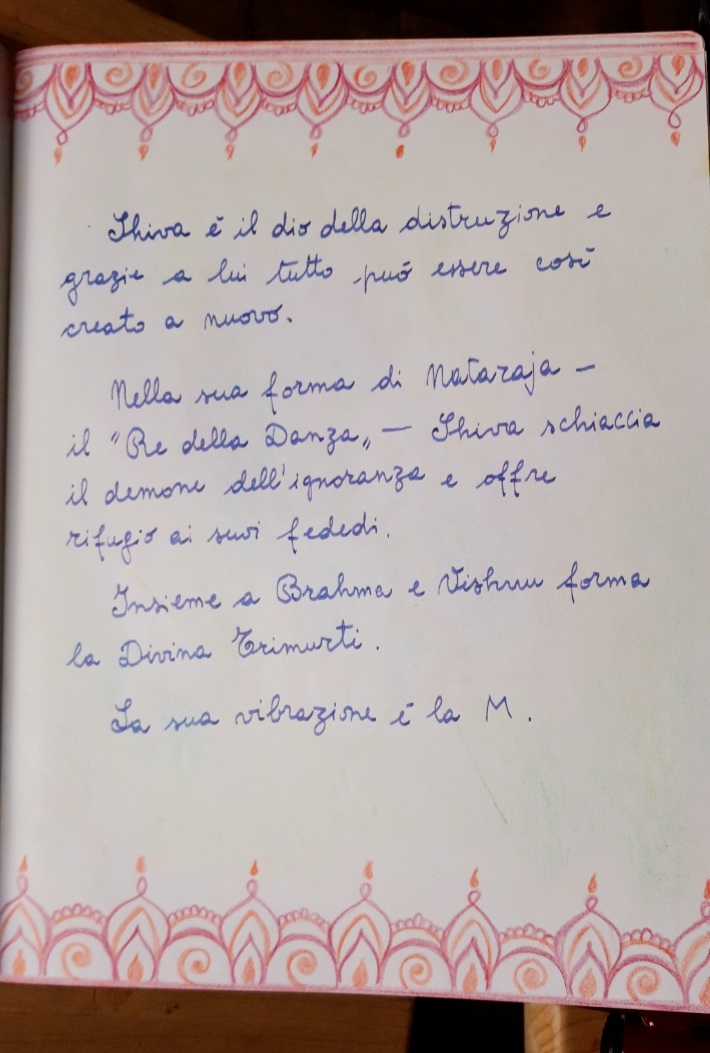 Shiva è il dio della distruzione e
grazie a lui tutto può essere così
creato a nuovo.
Nella sua forma di Nataraja –
il "Re della Danza„ – Shiva schiaccia
il demone dell'ignoranza e offre
rifugio ai suoi fededi.
Insieme a Brahma e Vishnu forma
la Divina Trimurti.
La sua vibrazione è la M.